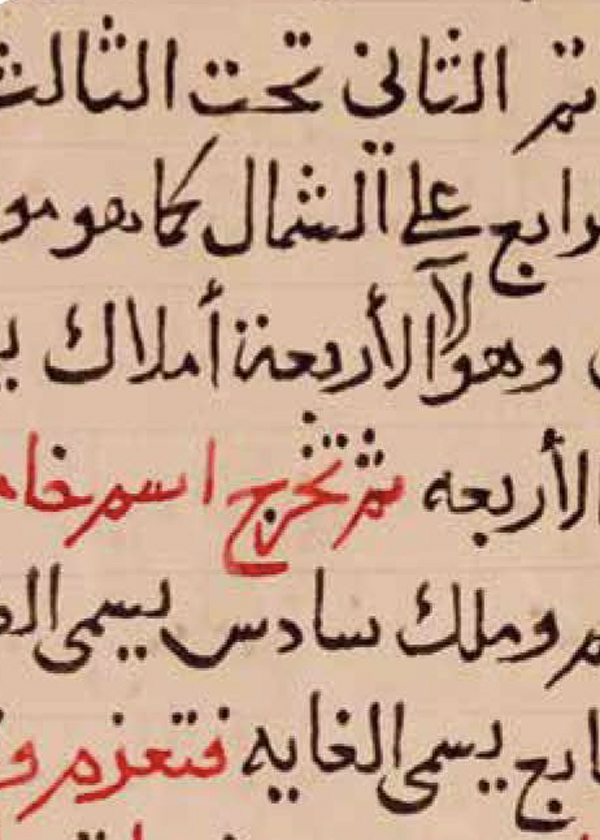 ثم الثاني تحت الثالث
رابع على الشمال كما هو مو
وهولآ الأربعة أملاك
الأربعه ثم تخرج اسم خا
وملك سادس يسمى ال
ابع يسمى الغايه فتعزم و